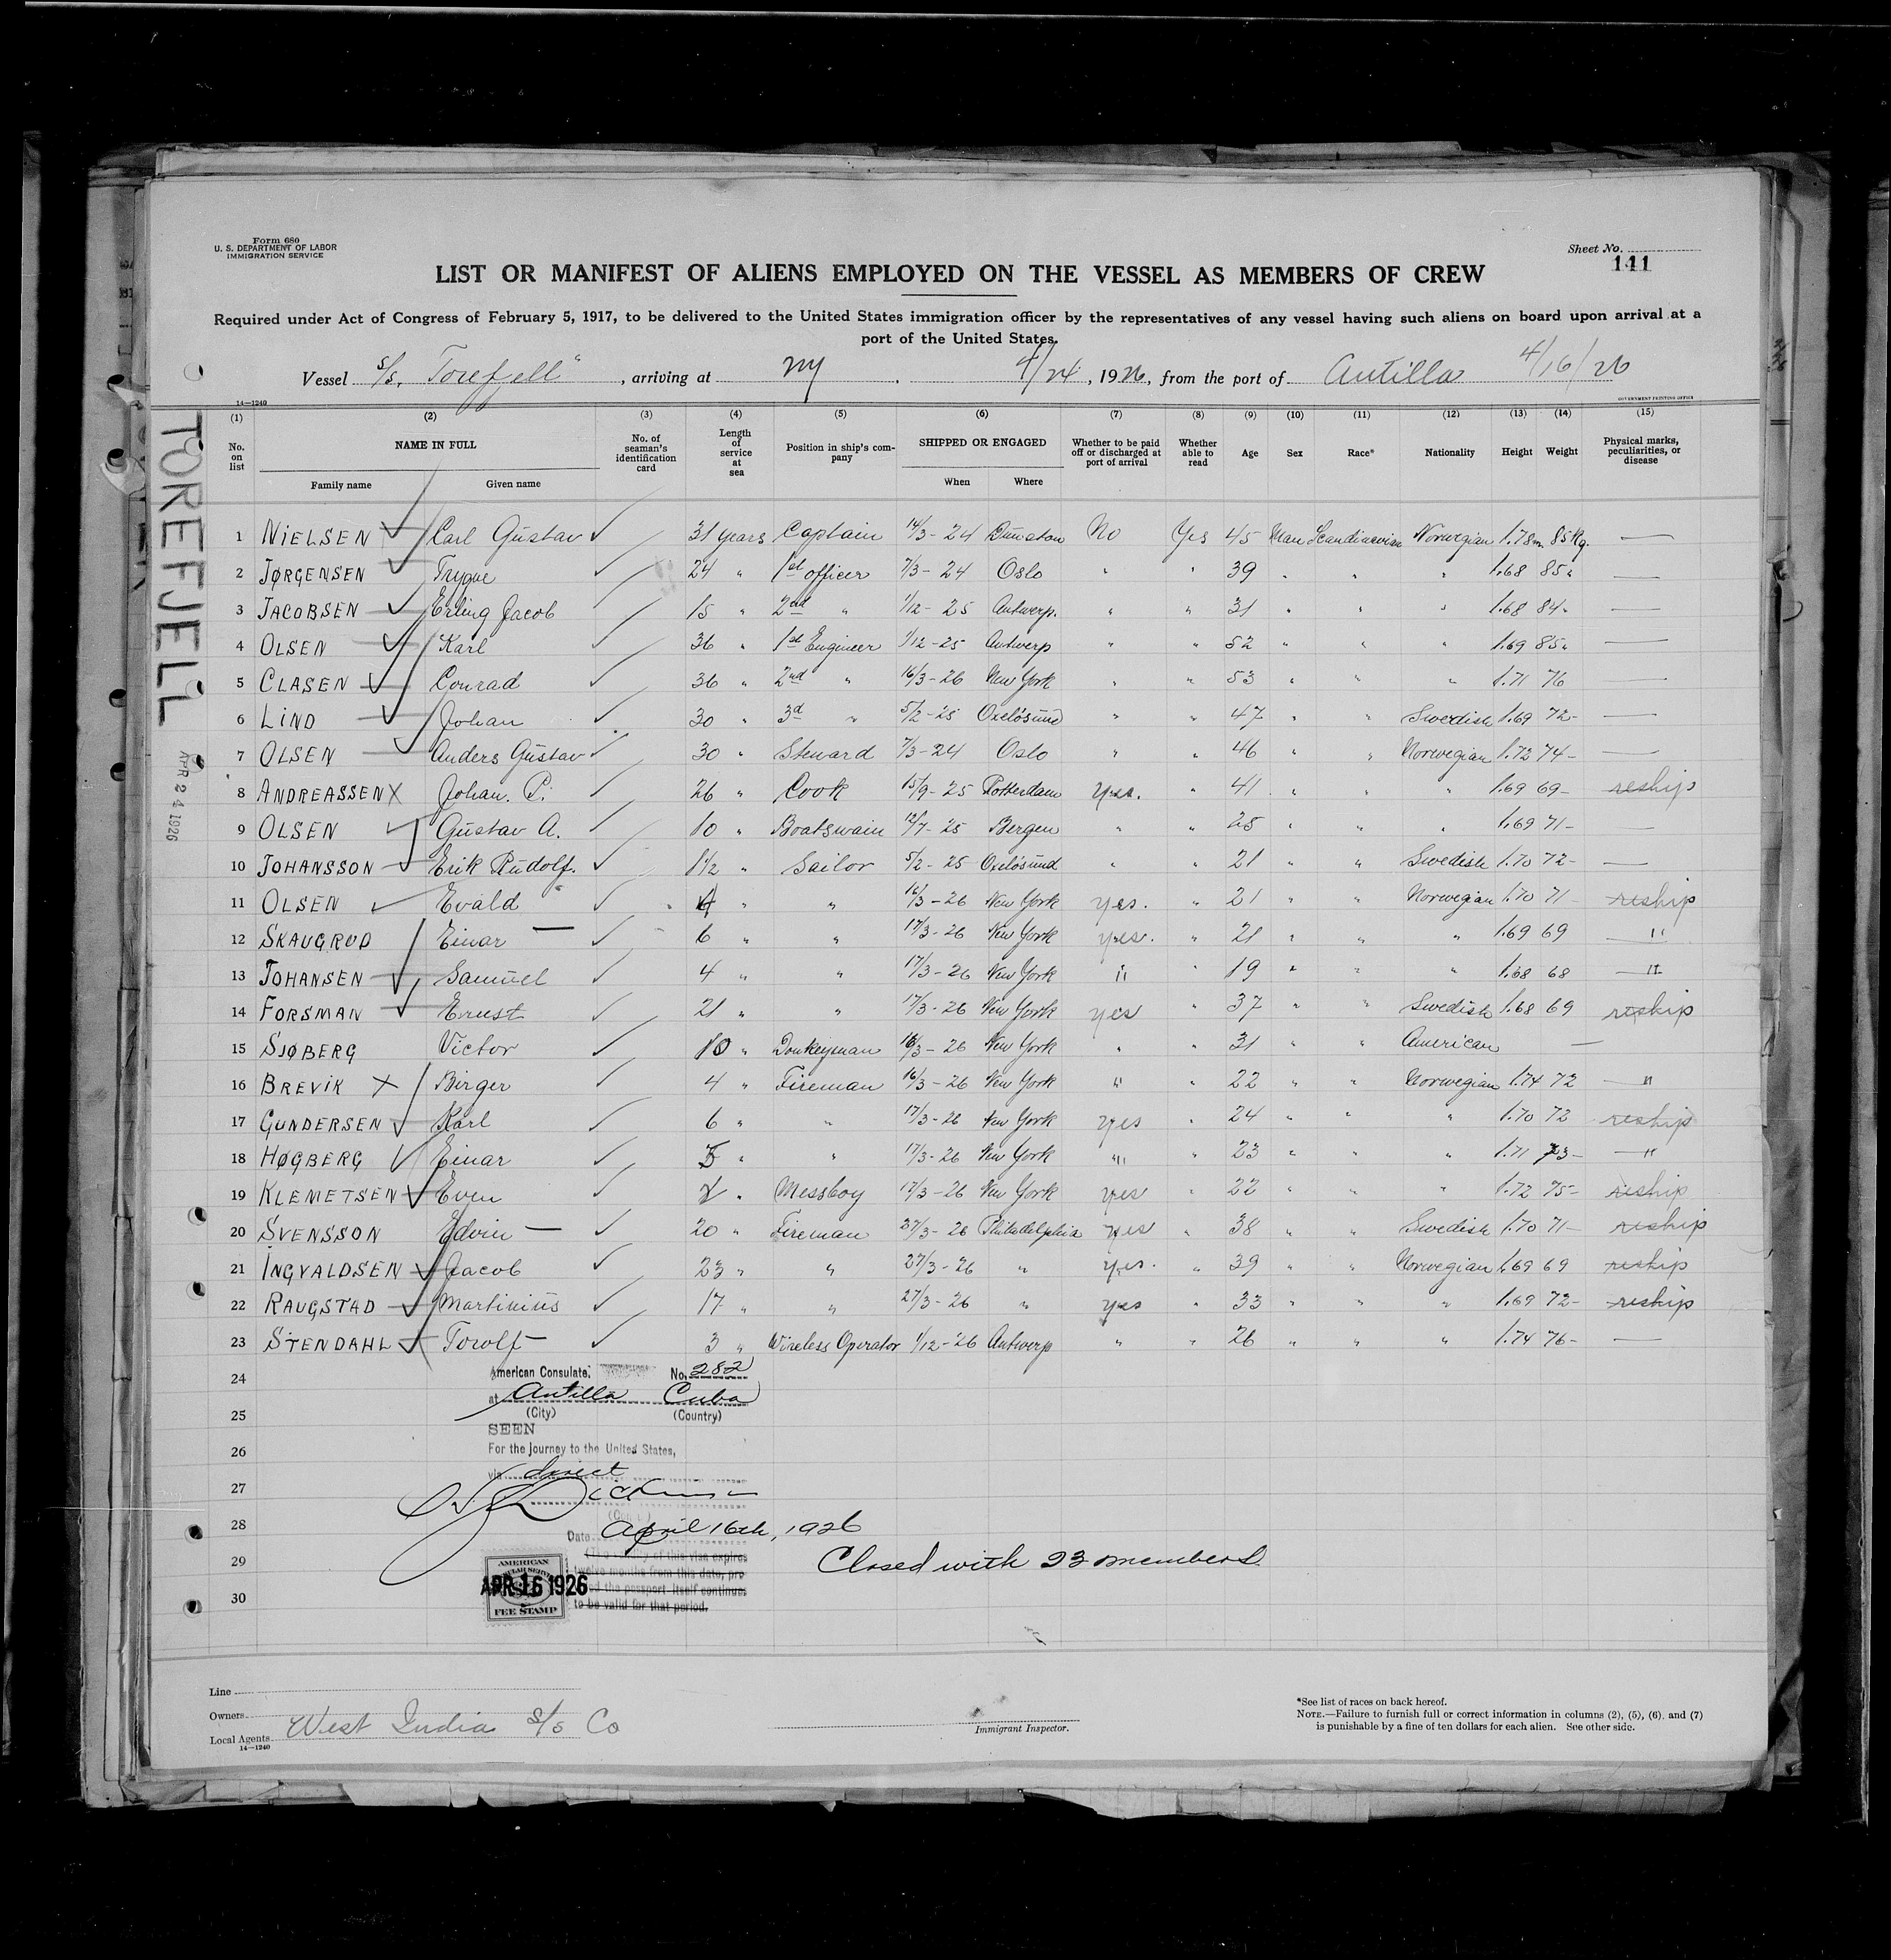 Form 680
U. S. DEPARTMENT OF LABOR
IMMIGRATION SERVICE
Sheet No.
111
LIST OR MANIFEST OF ALIENS EMPLOYED ON THE VESSEL AS MEMBERS OF CREW
Required under Act of Congress of February 5, 1917, to be delivered to the United States immigration officer by the representatives of any vessel having such aliens on board upon arrival at a
port of the United States.
Vessel S/S. Torefjell", arriving at NY, 4/24, 1926, from the port of Antilla 4/16/26
14—1240
GOVERNMENT PRINTING OFFICE
(1) (2) (3) (4) (5) (6) (7) (8) (9) (10) (11) (12) (13) (14) (15)
No. on list NAME IN FULL No. of seaman's identification card Length of service at sea Position in ship's company SHIPPED OR ENGAGED Whether to be paid off or discharged at port of arrival Whether able to read Age Sex Race* Nationality Height Weight Physical marks, peculiarities, or disease
Family name Given name When Where
1 NIELSEN Carl Gustav 31 years Captain 14/3-24 No Yes 45 Man Scandinavian Norwegian 1.78m 85kg. —
2 JØRGENSEN Trygve 24 " 1st officer 7/3-24 Oslo " " 39 " " " 1.68 85" —
3 JACOBSEN Erling Jacob 15 " 2nd " 1/12-25 Antwerp. " " 31 " " " 1.68 84" —
4 OLSEN Karl 36 " 1st Engineer 1/12-25 Antwerp " " 52 " " " 1.69 85" —
5 CLASEN Conrad 36 " 2nd " 16/3-26 New York " " 53 " " " 1.71 76 —
6 LIND Johan 30 " 3d " 5/2-25 Oxelösund " " 47 " " Swedish 1.69 72- —
7 OLSEN Anders Gustav 30 " Steward 7/3-24 Oslo " " 46 " " Norwegian 1.72 74- —
8 ANDREASSEN X Johan. P. 26 " Cook 15/9-25 Rotterdam yes. " 41 " " " 1.69 69- reship
9 OLSEN Gustav A. 10 " Boatswain 12/7-25 Bergen " " 25 " " " 1.69 71- —
10 JOHANSSON Erik Rudolf. 1 1/2 " Sailor 5/2-25 Oxelösund " " 21 " " Swedish 1.70 72- —
11 OLSEN Evald 4 " " 16/3-26 New York yes. " 21 " " Norwegian 1.70 71- reship
12 SKAUGRUD Einar — 6 " " 17/3-26 New York yes. " 21 " " " 1.69 69 "
13 JOHANSEN Samuel 4 " " 17/3-26 New York " " 19 " " " 1.68 68 "
14 FORSMAN Ernst 21 " " 17/3-26 New York yes " 37 " " Swedish 1.68 69 reship
15 SJØBERG Victor 10 " Donkeyman 16/3-26 New York " " 31 " " American —
16 BREVIK X Birger 4 " Fireman 16/3-26 New York " " 22 " " Norwegian 1.74 72 "
17 GUNDERSEN Karl 6 " " 17/3-26 New York yes " 24 " " " 1.70 72 reship
18 HØGBERG Einar 5 " " 17/3-26 New York " " 23 " " " 1.71 73- "
19 KLEMETSEN Even 2 " Messboy 17/3-26 New York yes " 22 " " " 1.72 75- reship
20 SVENSSON Edvin — 20 " Fireman 27/3-26 Philadelphia yes " 38 " " Swedish 1.70 71- reship
21 INGVALDSEN Jacob 23 " " 27/3-26 " yes. " 39 " " Norwegian 1.69 69 reship
22 RAUGSTAD Martinius 17 " " 27/3-26 " yes " 33 " " " 1.69 72- reship
23 STENDAHL Torolf — 3 " Wireless Operator 1/12-26 Antwerp " " 26 " " " 1.74 76- —
24
25
26
27
28
29
30
American Consulate, No. 282
at Antilla Cuba
(City) (Country)
SEEN
For the journey to the United States,
via direct
Date April 16th, 1926
Closed with 23 members
this visa expires
twelve months from this date, pro-
the passport itself continues
to be valid for that period.
AMERICAN
APR 16 1926
FEE STAMP
TOREFJELL
APR 24 1926
Line
Owners
Local Agents West India S/S Co
14—1240
Immigrant Inspector.
*See list of races on back hereof.
NOTE.—Failure to furnish full or correct information in columns (2), (5), (6) and (7)
is punishable by a fine of ten dollars for each alien. See other side.